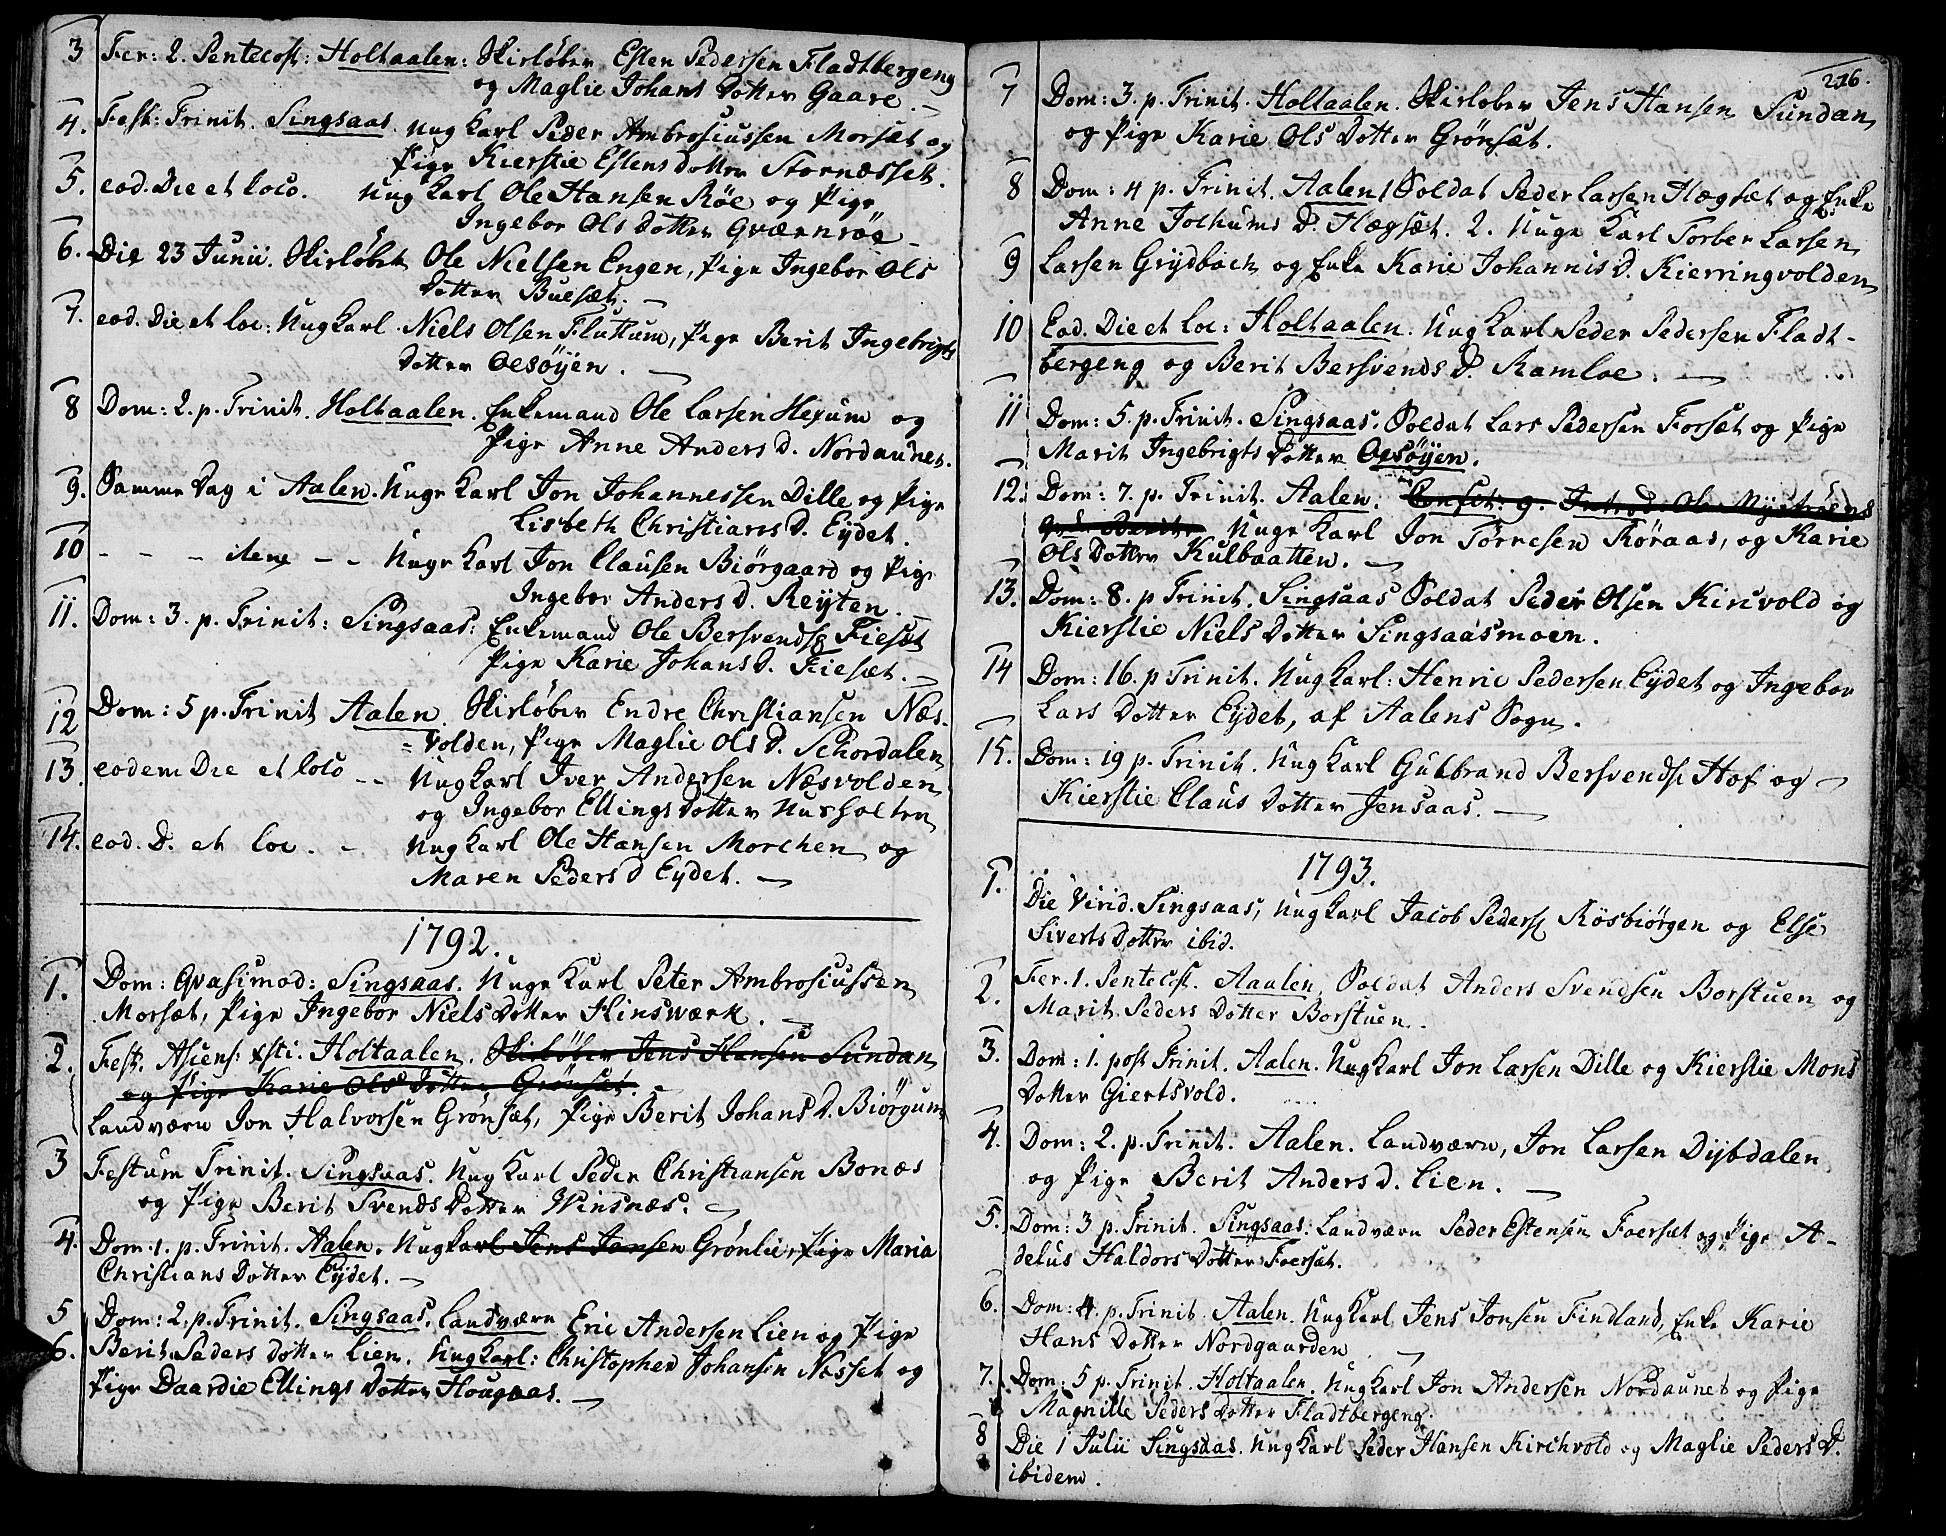 3 Fer: 2. Pentecost: Holtaalen: Skirløber Esten Pedersen Fladtbergeng
og Maglie Johans Dotter Gaare.
4. Fest: Trinit. Singsaas. Ung Karl Peder Ambrosiussen Morsæt og
Pige Kierstie Estens dotter Stornæsset.
5. eod. Die et loco. Ung Karl Ole Hansen Røe og Pige
Ingebor Ols Dotter Qværnrøe
6. Die 23 Junii. Skirløber Ole Nielsen Engen, Pige Ingebor Ols
Dotter Buesæt.
7. eod. Die et loc: Ung Karl Niels Olsen Fluttum, Pige Berit Ingebrigts
Dotter Oesøÿen.
8 Dom: 2. p. Trinit. Holtaalen. Enkemand Ole Larsen Hexum og
Pige Anne Anders d. Nordaunet.
9. Samme Dag i Aalen. Unge Karl Jon Johannessen Dille og Pige
Lisbeth Christians D. Eÿdet.
10 - - - item - - Unge Karl Jon Clausen Biörgaard og Pige
Ingebor Anders d. Reÿten.
11. Dom: 3. p. Trinit: Singsaas: Enkemand Ole Bersvends. Fiesæt
Pige Karie Johans d. Fiesæt.
12 Dom: 5 p. Trinit Aalen. Skirløber Endre Christiansen Næs-
= volden, Pige Maglie Ols D. Schordalen
13. eodem Die et loco - - Ung Karl Iver Andersen Næsvolden
og Ingebor Ellings Dotter Husholten
14. eod. D. et loc. - Ung Karl Ole Hansen Morchen og
Maren Peders d Eydet.
1792.
1. Dom: Qvasimod: Singsaas. Unge Karl Peter Ambrosiussen
Morsæt, Pige Ingebor Niels Dotter Hinsværk.
2. Fest. Ascens: Xsti. Holtaalen. Skirløber Jens Hansen Sundan
og Pige Karie Ols Dotter Grönset.
Landværn Jon Halvorsen Grönsæt, Pige Berit Johans D. Biörgum
3 Festum Trinit. Singsaas. Ung Karl Peder Christiansen Bonæs
og Pige Berit Svends Dotter Winsnæs.
4. Dom. 1. p. Trinit. Aalen. Ung Karl Jens Jansen Grönlie, Pige Maria
Christians Dotter Eÿdet.
5 Dom: 2. p. Trinit. Singsaas. Landværn Eric Andersen Lien og Pige
6. Berit Peders Dotter Lien. Ung Karl: Christopher Johansen Næsset og
Pige Daardie Ellings Dotter Hougaas.
216.
7 Dom: 3. p. Trinit. Holtaalen. Skirløber Jens Hansen Sundan
og Pige Karie Ols Dotter Grönsæt.
8 Dom: 4 p. Trinit. Aalen 1 Soldat Peder Larsen Hægsæt og Enke
Anne Jochums D. Hægsæt. 2. Unge Karl Torber Larsen
9 Larsen Grÿdbach og Enke Karie Johannis D. Kierringvolden
10 Eod. Die et loc: Holtaalen. Ung Karl Peder Pedersen Fladt-
bergeng og Berit Bersvends D. Ramloe.
11 Dom: 5. p. Trinit. Singsaas. Soldat Lars Pedersen Forsæt og Pige
Marit Ingebrigts Dotter Oesøÿen.
12. Dom: 7. p. Trinit. Aalen. Unge Karl Jon Törresen Röraas, og Karie
Ols Dotter Kulbaatten.
13. Dom: 8. p Trinit. Singsaas Soldat Peder Olsen Kirsvold og
Kierstie Niels Dotter Singsaasmoen.
14 Dom: 16. p Trinit. Ung Karl: Henric Pedersen Eÿdet og Ingebor
Lars Dotter Eÿdet, af Aalens Sogn.
15. Dom: 19 p. Trinit. Ung Karl Gulbrand Bersvends. Hof og
Kierstie Claus Dotter Jensaas.
1793.
1. Die Virid. Singsaas, Ung Karl Jacob Peders. Rösbiörgen og Else
Siverts Dotter ibid.
2. Fer. 1. Pentecst. Aaalen, Soldat Anders Svendsen Borstuen og
Marit Peders Dotter Borstuen.
3. Dom: 1. post Trinit. Aalen. Ung Karl Jon Larsen Dille og Kierstie Mons
Dotter Giertsvold.
4. Dom: 2. p. Trinit. Aalen. Landværn, Jon Larsen Dÿbdalen
og Pige Berit Anders d. Lien.
5. Dom: 3 p. Trinit. Singsaas. Landværn Peder Estensen Foersæt og Pige A-
delus Haldors Dotter Foersæt.
6. Dom: 4. p. Trinit. Aalen. Ung Karl Jens Jonsen Findland, Enke Karie
Hans Dotter Nordgaarden
7. Dom: 5 p. Trinit. Holtaalen. Ung Karl Jon Andersen Nordaunet og Pige
Magnille Peders Dotter Fladtbergeng.
8 Die 1 Julii Singsaas. Ung Karl Peder Hansen Kirchvold og Maglie Peders D.
ibidem.